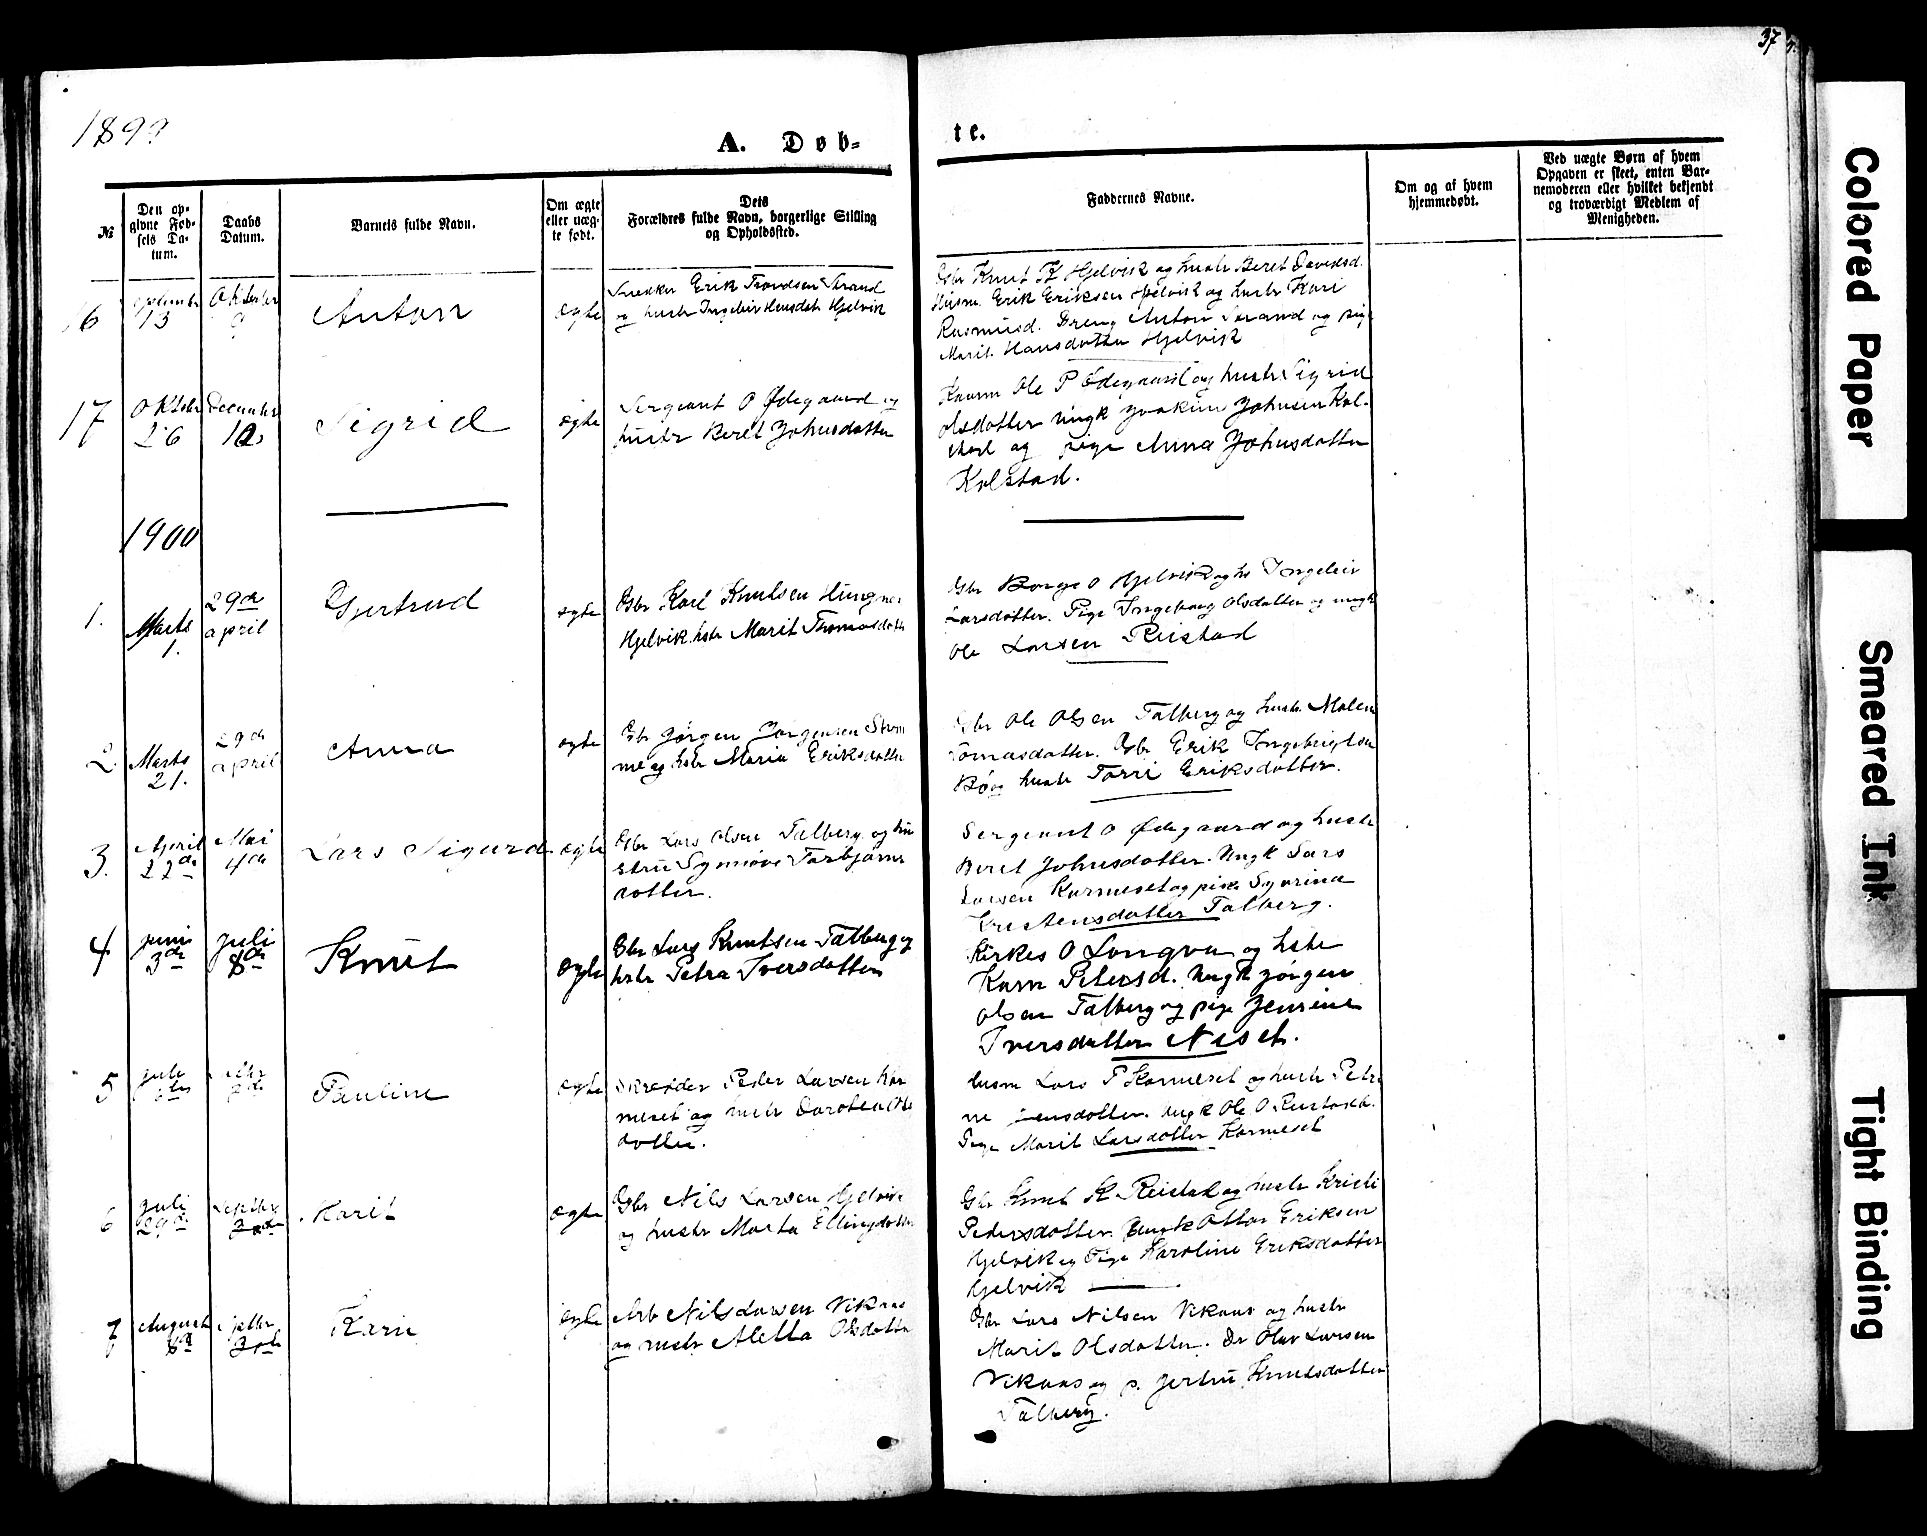 37
1899
A. Døb-
te.
№
Den op-
givne Fød-
sels Da-
tum.
Daabs
Datum.
Barnets fulde Navn.
Om ægte
eller uæg-
te født.
Dets
Forældres fulde Navn, borgerlige Stilling
og Opholdssted.
Faddernes Navne.
Om og af hvem
hjemmedøbt.
Ved uægte Børn af hvem
Opgaven er skeet, enten Bar-
nemoderen eller hvilket bekjendt
og troværdigt Medlem af
Menigheden.
16
September
13
Oktober
Anton
egte
Snekker Erik Trondsen Strand
og hustr Ingebir Hansdatr Hjelvik
Gbr Knut K Hjelvik og hustr Beret Davidsd.
Husm. Erik Eriksen Hjelvik og hustr Kari
Rasmusd. Dreng Anton Strand og pige
Marit Hansdotter Hjelvik
17
Oktober
26
December
10
Sigrid
egte
Sergeant O Ødegaard og
hustr Beret Johnsdotter
Ole P Ødegaard og hustr Sigrid
Olsdotter Ungk Joakim Johnsen Kol-
stad og pige Anna Johnsdotter
Kolstad.
1900
1.
Marts
1.
29de
april
Gjertrud
egte
Gbr Karl Knutsen
Hjelvik hstr Marit Thomasdotter
Gbr Børge O Hjelvik og hs Ingebir
Larsdotter. Pige Ingeborg Olsdotter og ungk
Ole Larsen Reistad
2
Marts
21.
29de
april
Anna
egte
Gbr Jørgen Jørgensen Strom
me og hstr Maria Eriksdotter
Gbr Ole Olsen Talberg og hustr. Malene
Tomasdotter. Gbr Erik Ingebrigtsen
Bø og hustr Torri Eriksdotter.
3.
April
22de
Mai
4de
Lars Sigurd
egte
Gbr Lars Olsen Talberg og hu
stru Synnøve Torbjørns
dotter.
Sergeant O Ødegaard og hustr
Beret Johnsdotter. Ungk Lars
Larsen Kormeset og pige Synrina
Kristensdotter Talberg.
4
juni
3de
juli
8de
Knut
egte
Gbr Lars Knutsen Talberg og
hstr Petra Iversdotter
Kirkes O Longva og hstr
Karn Petersd. Ungk Jørgen
Olsen Talberg og pige Jensine
Iversdotter Niset.
5
juli
Pauline
egte
Skredder Peder Larsen Kor
meset og hustr Dorotea Ols
dotter.
Husm Lars P Kormeset og hustr Petri
ne Jensdotter. Ungk Ole O Reistad.
Pige Marit Larsdotter Kormeset
6
juli
29de
Septbr
Marit
egte
Gbr Nils Larsen Hjelvik
og hustr Marta Ellingsdotter
Gbr Knut K Reistad og hustr Kristi
Pedersdotter. Ungk Ottar Eriksen
Hjelvik og Pige Karoline Eriksdotter
Hjelvik
7
August
Septbr
Karn
egte
Arb Nils Larsen Vikaas
og hustr Aletta Olsdotter
Gbr Lars Nilsen Vikaas og hustr
Marit Olsdotter. Dr Olav Larsen
Vikaas og p. Jertru Knutsdotter
Talberg.
Colored Paper
Smeared Ink
Tight Binding